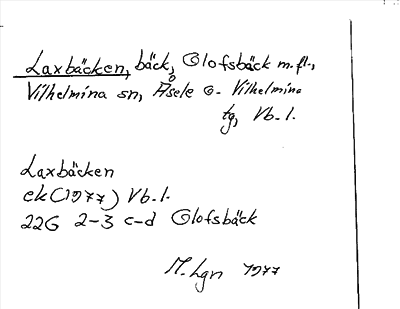 Laxbäcken, bäck, Olofsbäck m.fl.,
Vilhelmina sn, Åsele o. Vilhelmina
tg, Vb. l.
Laxbäcken
ek (1977) Vb. l.
22G 2-3 c-d Olofsbäck
M. Lgn 1977